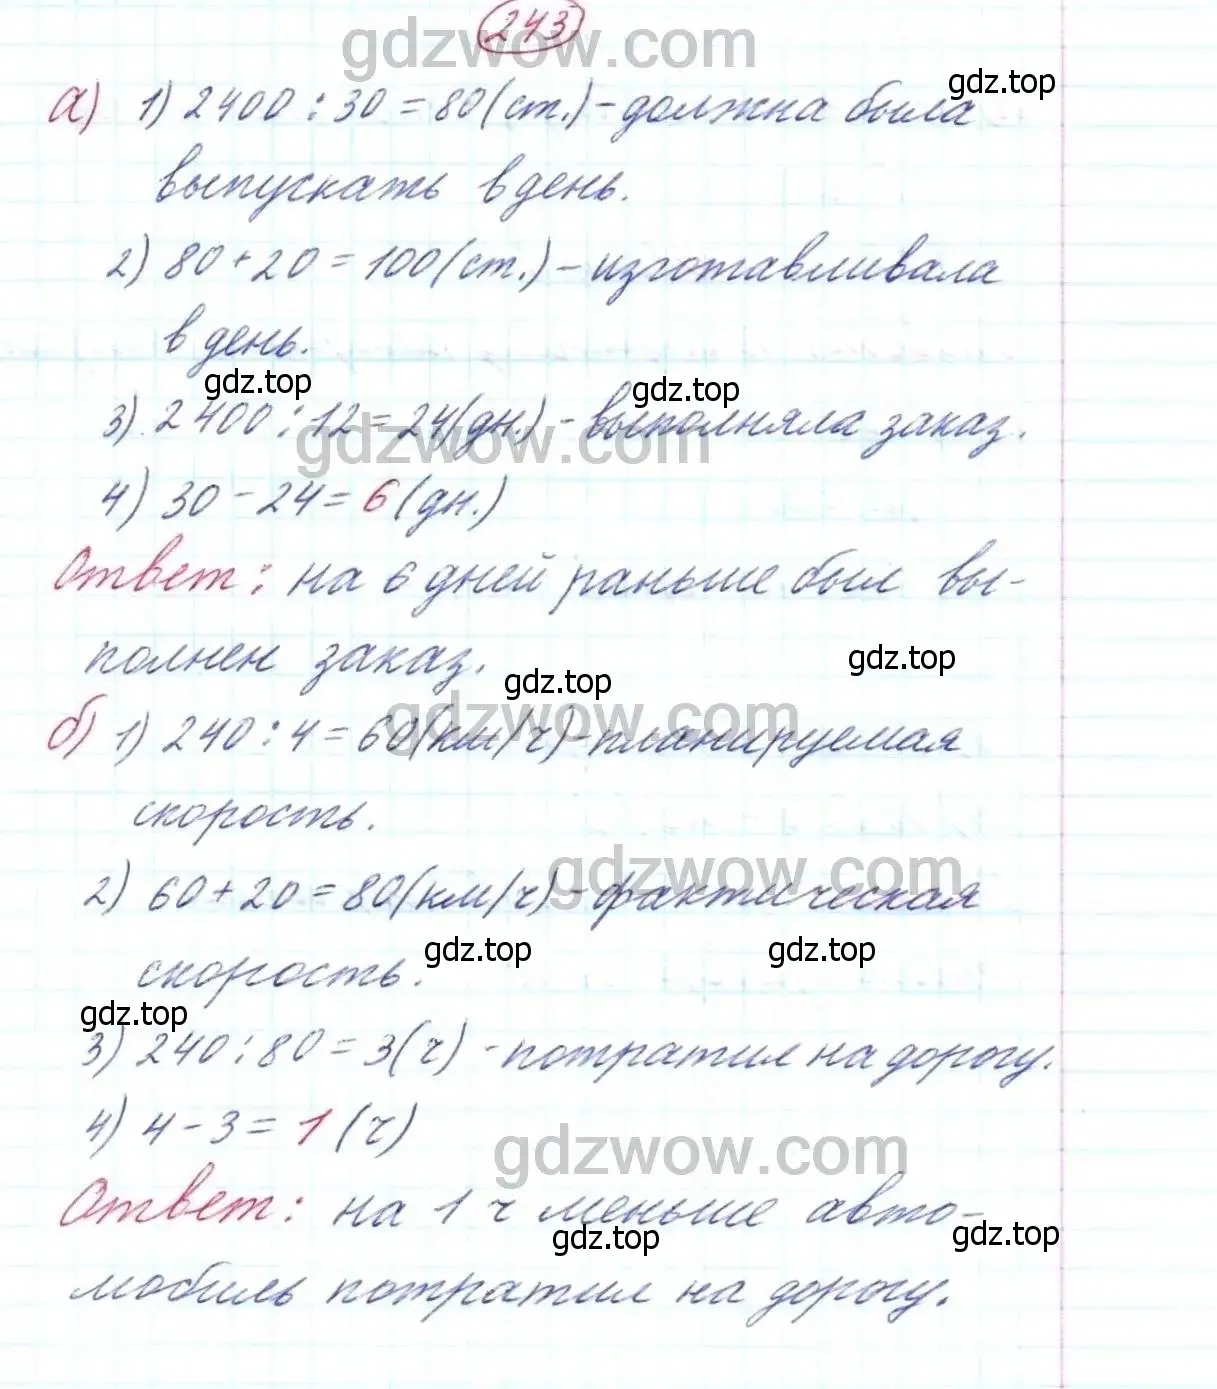 243
gdzwow.com
gdz.top
а) 1) 2400 : 30 = 80 (ст.) - должна была
выпускать в день.
2) 80 + 20 = 100 (ст.) - изготавливала
в день.
gdz.top gdz.top
3) 2400 : 12 = 24 (дн.) - выполняла заказ.
gdzwow.com
4) 30 - 24 = 6 (дн.)
Ответ: на 6 дней раньше был вы-
полнен заказ.
gdz.top
gdz.top
gdzwow.com
б) 1) 240 : 4 = 60 (км/ч) - планируемая
скорость.
gdzwow.com
2) 60 + 20 = 80 (км/ч) - фактическая
gdz.top gdz.top
скорость.
gdz.top
3) 240 : 80 = 3 (ч) - потратил на дорогу.
4) 4 - 3 = 1 (ч)
gdzwow.com
Ответ: на 1 ч меньше авто-
gdz.top gdz.top
мобиль потратил на дорогу.